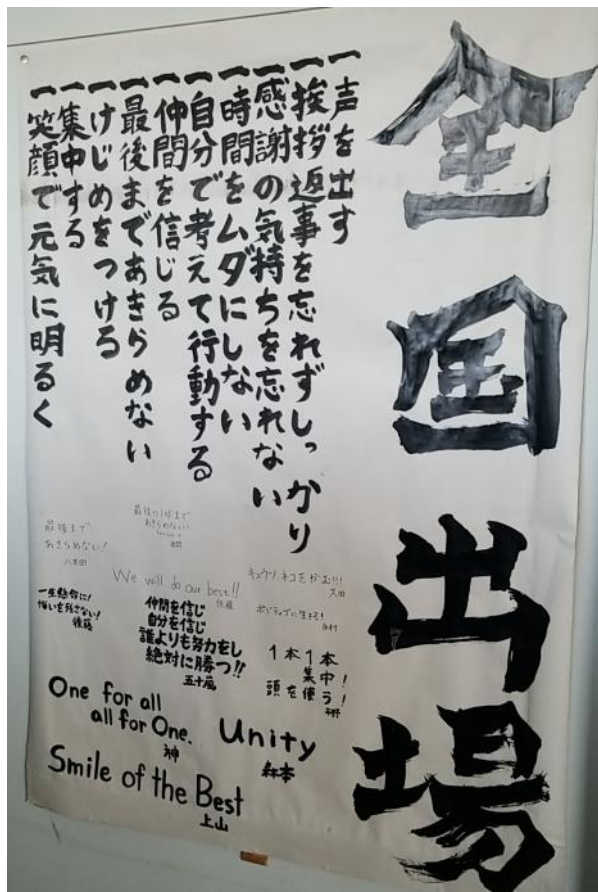 全国出場
一声を出す
一挨拶返事を忘れずしっかり
一感謝の気持ちを忘れない
一時間をムダにしない
一自分で考えて行動する
一仲間を信じる
一最後まであきらめない
一けじめをつける
一集中する
一笑顔で元気に明るく
最後まで
あきらめない!
八重田
最後の1球まで
あきらめない!
We will do our best!!
佐藤
キュウソネコをかむ!!!
久田
ポジティブに生きる!
一生懸命に!
悔いを残さない!
後藤
仲間を信じ
自分を信じ
誰よりも努力をし
絶対に勝つ!!
五十嵐
1本1本
集中!
頭を使う!
One for all
all for One.
神
Unity
森本
Smile of the Best
上山